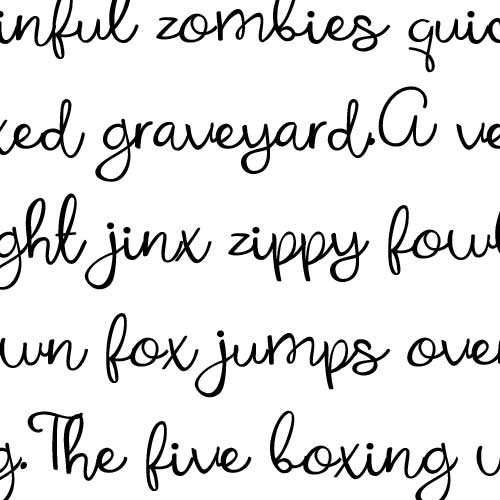 inful zombies quic
xed graveyard.A ve
ght jinx zippy fowl
wn fox jumps over
g.The five boxing w